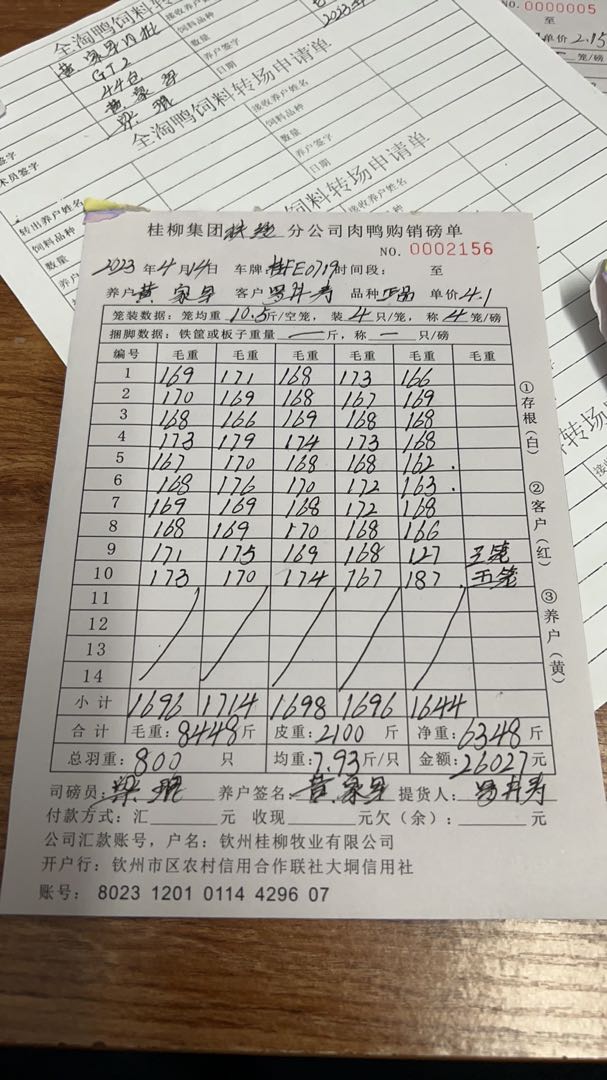 NO.0000005
至
单价 2.15
笼/磅
全淘鸭饲料转场申请单
接收养户姓名
饲料品种
数量
养户签字
日期
GT2
44包
全淘鸭饲料转场申请单
术员签字
签字
转出养户姓名
饲料品种
数量
接收养户姓名
饲料品种
数量
养户签字
日期
桂柳集团 分公司肉鸭购销磅单
NO. 0002156
2023年4月14日 车牌 桂FE0719 时间段: 至
养户 黄家 客户 品种 正品 单价 4.1
笼装数据:笼均重 10.5 斤/空笼,装 4 只/笼,称 4 笼/磅
捆脚数据:铁筐或板子重量 — 斤,称 — 只/磅
编号 毛重 毛重 毛重 毛重 毛重 毛重
1 169 171 168 173 166
2 170 169 168 167 169
3 168 166 169 168 168
4 173 179 174 173 168
5 167 170 168 168 162.
6 168 176 170 172 163.
7 169 169 168 172 168
8 168 169 170 168 166
9 171 175 169 168 127 三笼
10 173 170 174 167 187 五笼
11
12
13
14
小计 1696 1714 1698 1696 1644
合计 毛重:8448斤 皮重:2100 斤 净重:6348斤
总羽重:800 只 均重:7.93斤/只 金额:26027元
司磅员: 养户签名:黄家 提货人:
付款方式:汇 元 收现 元欠(余): 元
公司汇款账号,户名:钦州桂柳牧业有限公司
开户行:钦州市区农村信用合作联社大垌信用社
账号:8023 1201 0114 4296 07
①存根(白)
②客户(红)
③养户(黄)